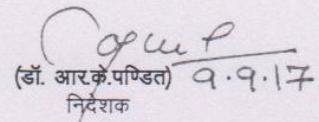 (डॉ. आर.के.पण्डित) 9.9.17
निदेशक